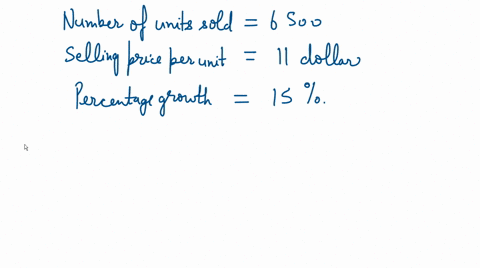 Number of units sold = 6500
Selling price per unit = 11 dollar
Percentage growth = 15 %.